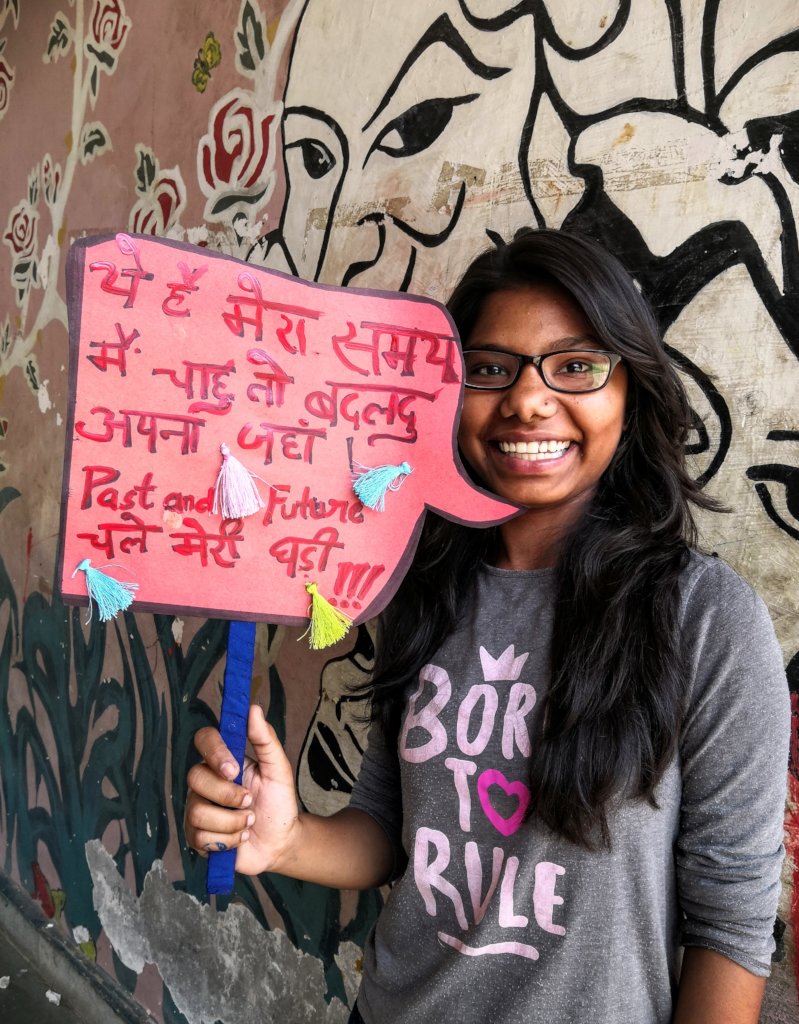 ये है मेरा समय
मैं चाहु तो बदलदु
अपना जहां !
Past and Future
चले मेरी घड़ी !!!
BOR
T
RULE